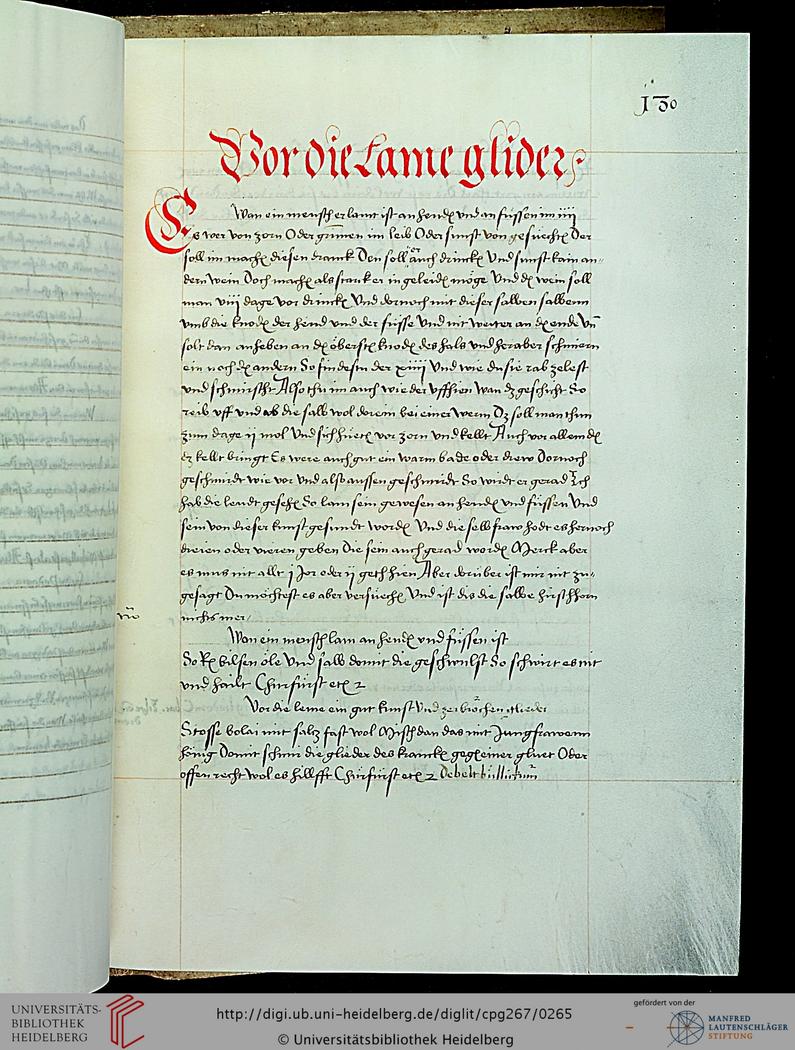 130
Vor die Lame glider
Wan ein mensch erlamt ist an hend vnd an füssen im iiij
Es wer von zorn Oder grimen im leib Oder sunst von gesücht Der
soll im mach diesen dranck Den soll er auch drinck Vnd sunst kain an-
dern wein Doch mach als starck er in geleid möge Vnd d wein soll
man viij dage vor drinck Vnd dornoch mit dieser salben salbenn
vmb die knod der hend vnd der füsse Vnd nit weiter an d ende Vn
solt dan anheben an d öberst knod des hals vnd heraber schmiern
ein noch d andern So findestu der xiiij Vnd wie du sie rab zelest
vnd schmirscht Also thu im auch wieder vffhien Wan dz geschicht So
reib vff vnd ab die salb wol dorein bei einer werm Dz soll man thun
zum dage ij mol Vnd sich hüet vor zorn vnd kellt Auch vor allem d
dz kellt bringt Es were auch gut ein warm bade oder drew Dornoch
geschmirdt wie vor vnd also aussen geschmirdt So wirdt er gerad Ich
hab die leudt geseh So lam sein gewesen an hend vnd füssen Vnd
sein von dieser kunst gesundt word Vnd die selb fraw hodt es hernoch
dreien oder vieren geben Die sein auch gerad word Merck aber
es mus nit allt j Jor oder ij geth hien Aber dorüber ist mir nit zu-
gesagt Du möchtest es aber versüech Vnd ist dis die salbe hirschhorn
nichts mer
Wan ein mensch lam an hend vnd füssen ist
So Rx bilsen öle Vnd salb domit die geschwulst So schwirt es nit
vnd hailt Churfürst etc 2
Vor die leme ein gut kunst vnd zerbrochen glieder
Stosse bolai mit saltz fast wol Misch dan das mit Jungfrawenn
hönig Domit schmir die glieder des kranck geg einer gluet Oder
offen recht wol es hillfft Churfürst etc 2
UNIVERSITÄTS-
BIBLIOTHEK
HEIDELBERG
http://digi.ub.uni-heidelberg.de/diglit/cpg267/0265
© Universitätsbibliothek Heidelberg
gefördert von der
MANFRED
LAUTENSCHLÄGER
STIFTUNG